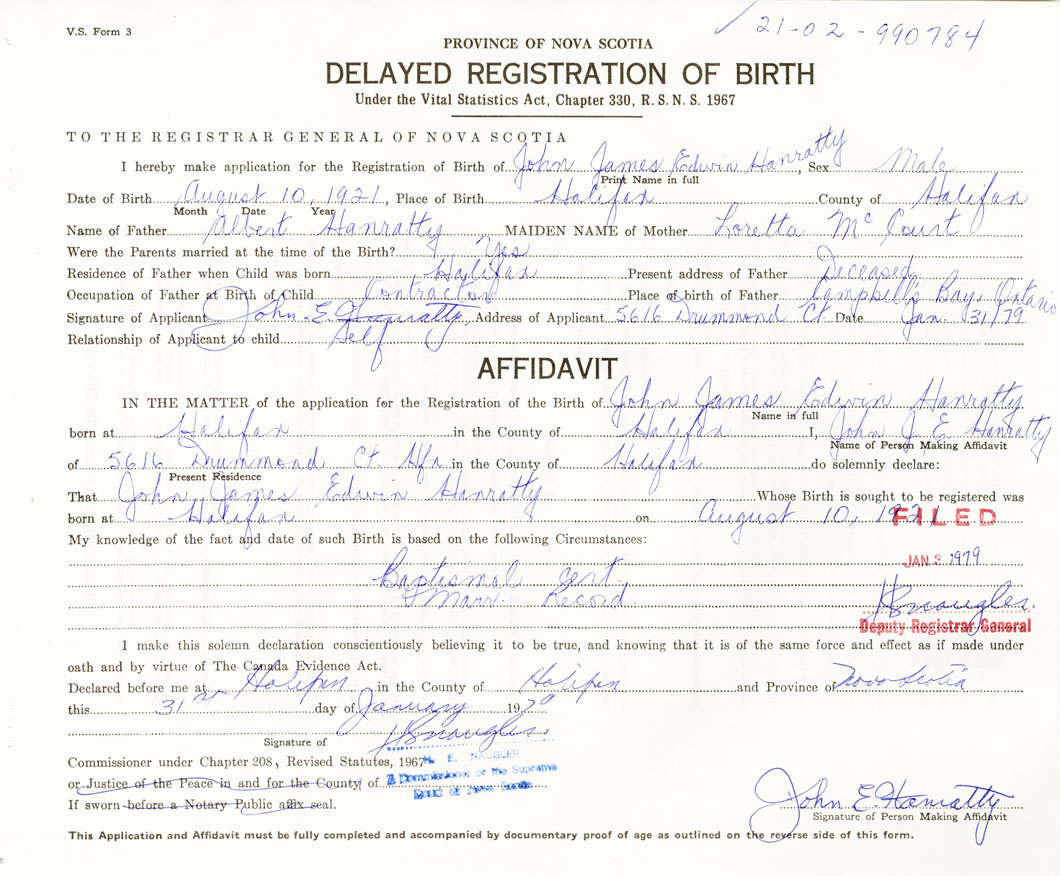 V.S. Form 3
✓ 21-02-990784
PROVINCE OF NOVA SCOTIA
DELAYED REGISTRATION OF BIRTH
Under the Vital Statistics Act, Chapter 330, R.S.N.S. 1967
TO THE REGISTRAR GENERAL OF NOVA SCOTIA
I hereby make application for the Registration of Birth of John James Edwin Hanratty, Sex Male
Print Name in full
Date of Birth August 10, 1921, Place of Birth Halifax County of Halifax
Month Date Year
Name of Father Albert Hanratty MAIDEN NAME of Mother Loretta McCourt
Were the Parents married at the time of the Birth? Yes
Residence of Father when Child was born Halifax Present address of Father Deceased
Occupation of Father at Birth of Child Contractor Place of birth of Father Campbell's Bay, Ontario
Signature of Applicant John E. Hanratty Address of Applicant 5616 Drummond Ct. Date Jan. 31/79
Relationship of Applicant to child Self
AFFIDAVIT
IN THE MATTER of the application for the Registration of the Birth of John James Edwin Hanratty
Name in full
born at Halifax in the County of Halifax I, John J. E. Hanratty
Name of Person Making Affidavit
of 5616 Drummond Ct. Hfx in the County of Halifax do solemnly declare:
Present Residence
That John James Edwin Hanratty Whose Birth is sought to be registered was
born at Halifax on August 10, 1921
FILED
My knowledge of the fact and date of such Birth is based on the following Circumstances:
JAN 3 1979
Baptismal Cert.
& Marr. Record.
Deputy Registrar General
I make this solemn declaration conscientiously believing it to be true, and knowing that it is of the same force and effect as if made under
oath and by virtue of The Canada Evidence Act.
Declared before me at Halifax in the County of Halifax and Province of Nova Scotia
this 31st day of January 1979
Signature of
Commissioner under Chapter 208, Revised Statutes, 1967
H. E. NAUGLER
or Justice of the Peace in and for the County of
A Commissioner of the Supreme
Court of Nova Scotia
If sworn before a Notary Public affix seal.
John E. Hanratty
Signature of Person Making Affidavit
This Application and Affidavit must be fully completed and accompanied by documentary proof of age as outlined on the reverse side of this form.